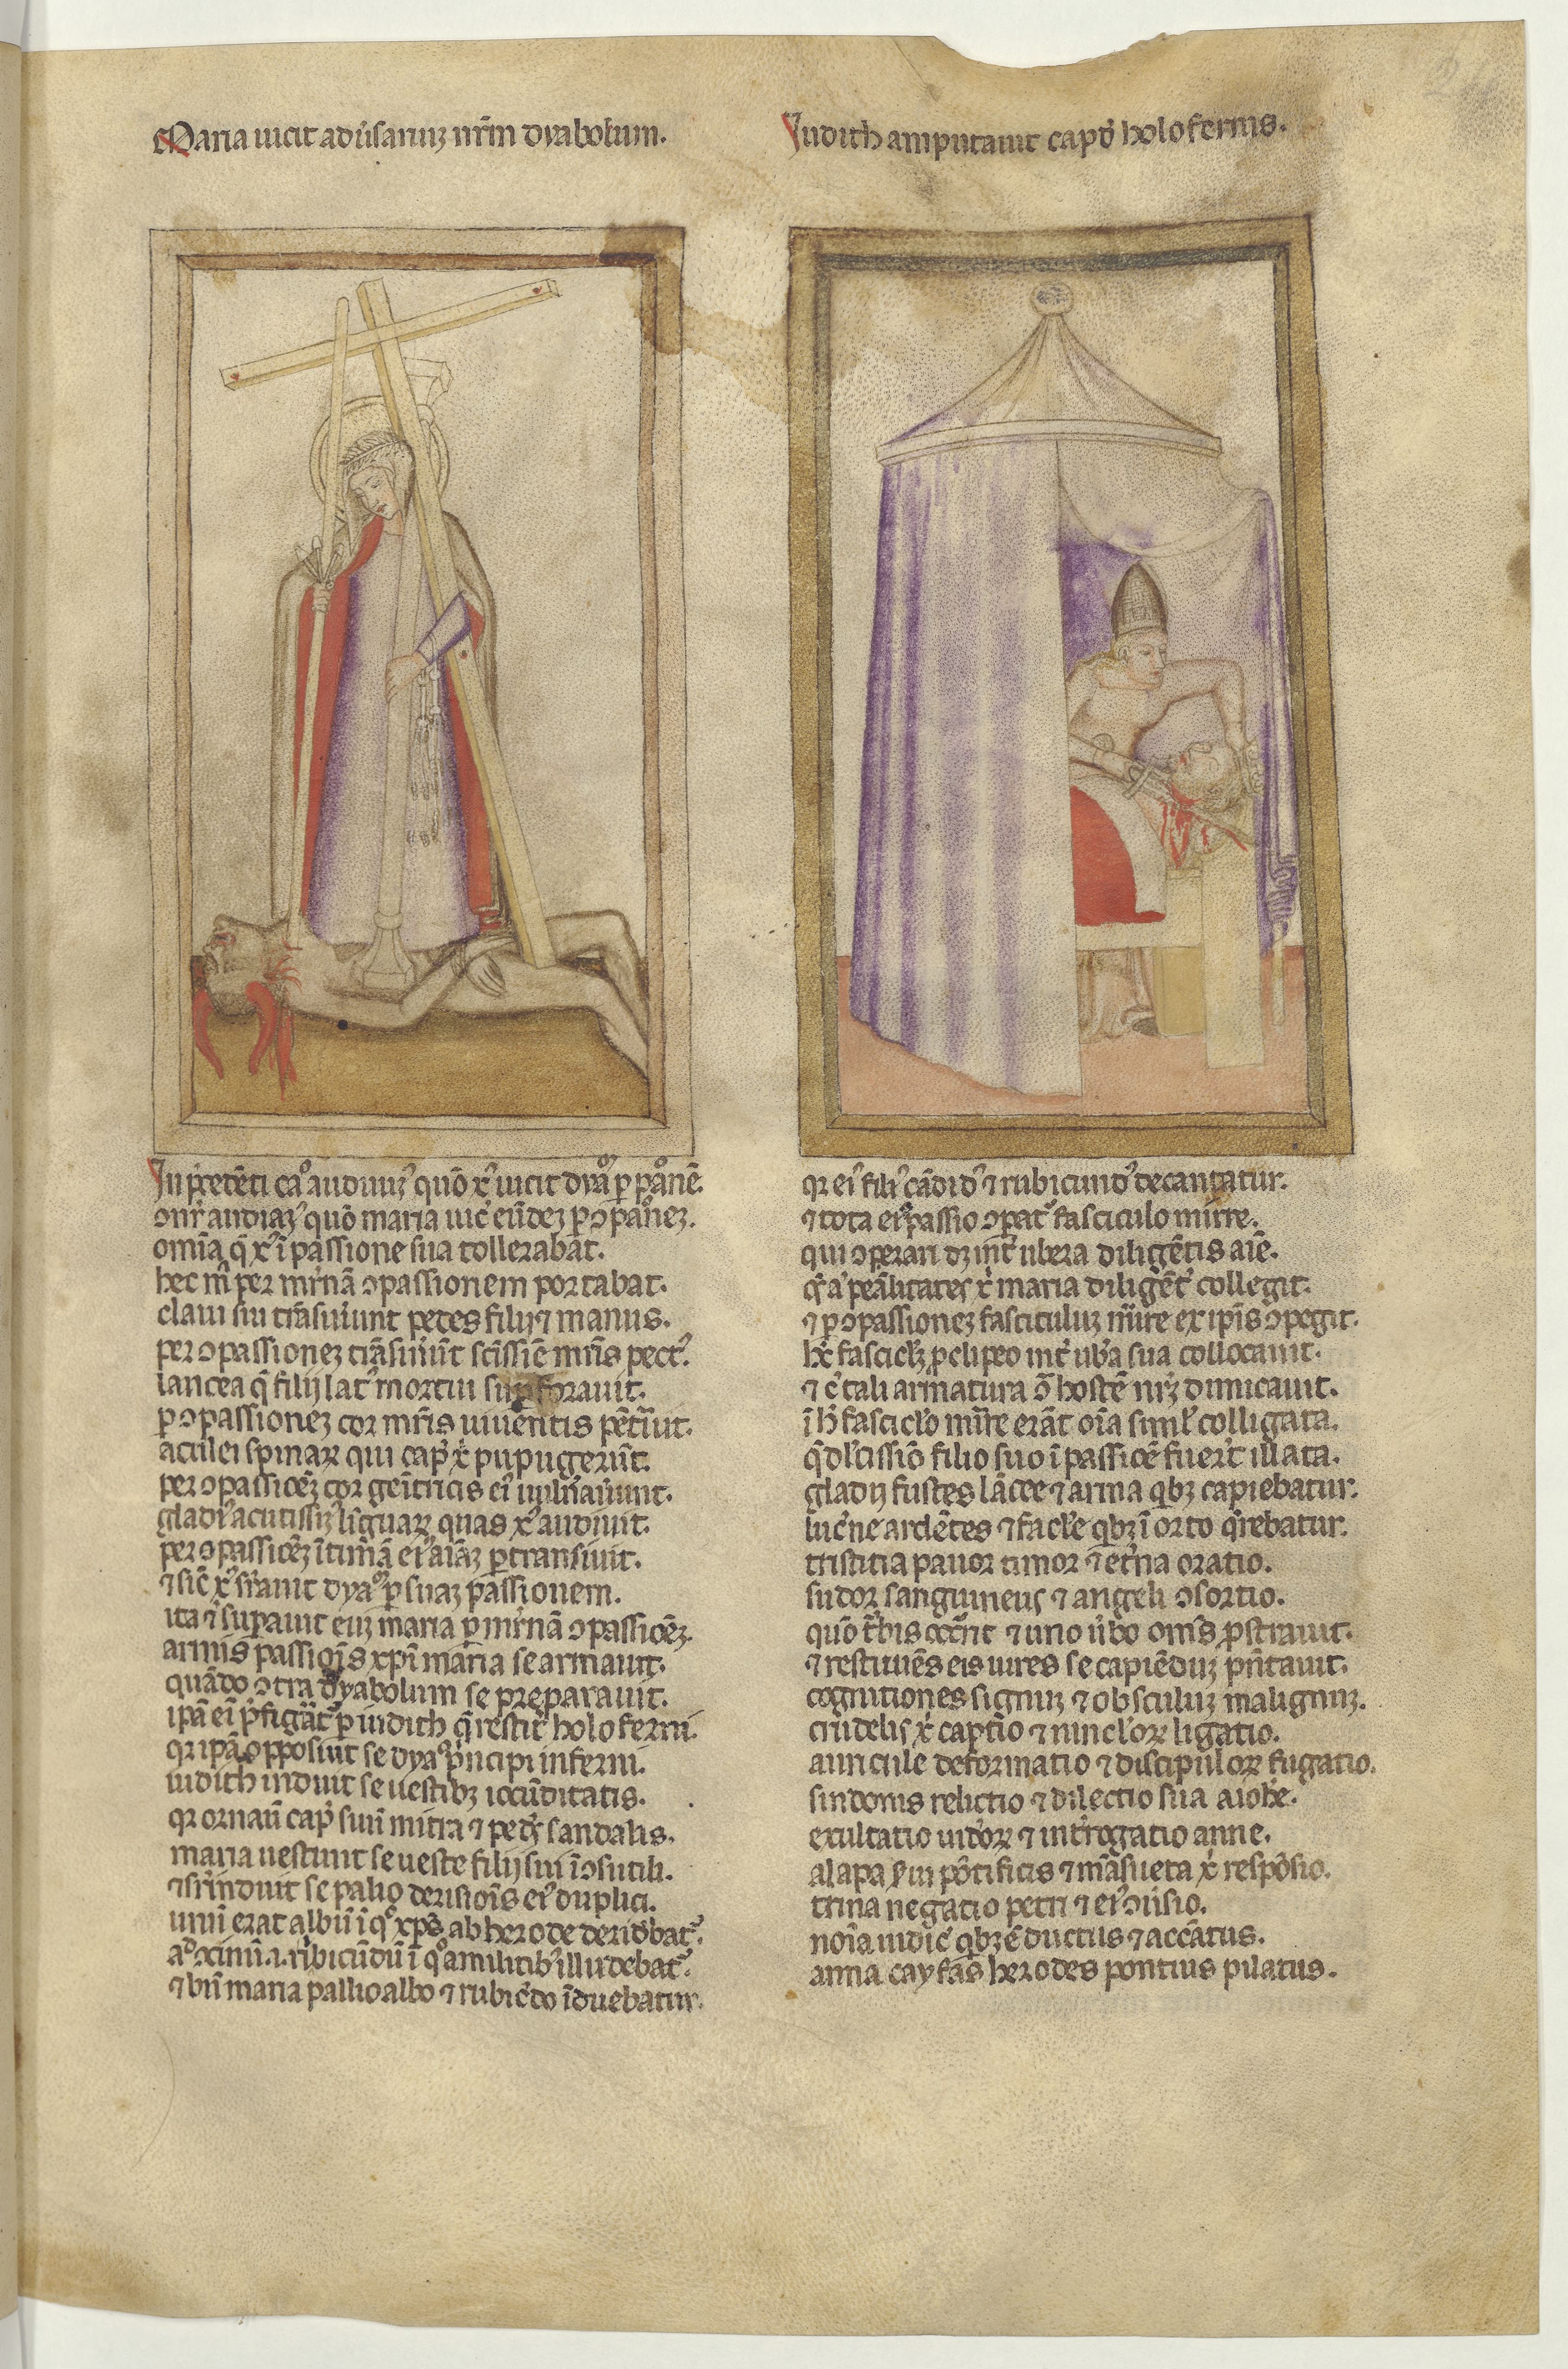 Maria uicit adũsariuʒ nr̃m dyabolum.
Iudith amputauit capď holofernis.
In p̃cedẽti ca° audiuimʼ quõ xʼ uicit dya° p pa°nẽ.
ↄnr̃ audiaʒʼ quõ maria uic̃ eũdeʒ p ↄpa°neʒ.
omĩa q̃ xʼ ĩ passione sua tollerabat.
hec mʼ per mr̃nã ↄpassionem portabat.
claui sui trãsiuiunt pedes filij ⁊ manus.
per ↄpassioneʒ trãsiuiũt sctissiẽ mr̃is pectʼ.
lancea q̃ filij latʼ mortui suꝑforauit.
p ↄpassioneʒ cor mr̃is uiuentis pẽtiuit.
aculei spinaꝝ qui cap̃ xʼ pupugerũt.
per ↄpassiõeʒ cor genĩtricis eiʼ uulnãuunt.
gladiʼ acutissiʒʼ linguaꝝ quas xʼ audiuit.
per ↄpassiõeʒ ĩtimã eiʼ aĩaʒ ꝑtransiuit.
⁊ sic̃ xʼ sr̃auit dya° p suaʒ passionem.
ita ⁊ suꝑauit euʒ maria p mr̃nã ↄpassiõeʒ.
armis passiõis xp̃i maria se armauit.
quãdo ↄtra dyabolum se preparauit.
ipã eĩ p̃figãtʼ p iudith q̃ restitʼ holoferni.
qꝛ ipã ↄpposuit se dya° p̃ncipi inferni.
iudith induit se uestibʒ iocũditatis.
qꝛ ornauit cap̃ suũ mitra ⁊ pedʒ sandalis.
maria uestiuit se ueste filij sui ĩↄsutili.
⁊ sr̃ induit se palio derisiõis eiʼ duplici.
unũ erat albũ ĩ q° xp̃s ab herode deridebatʼ.
a°ↄcinũ .ı. rubicũdũ ĩ q° a militibʼ illudebatʼ.
⁊ bn̄ maria pallio albo ⁊ rubic̃do ĩduebatur.
qꝛ eiʼ filiʼ cãdidʼ ⁊ rubicundʼ decantatur.
⁊ tota eiʼ passio ↄpatʼ fasciculo mirre.
qui ↄperari dʒ int̃ ubera diligẽtis aĩe.
q̃ a° peãlitates xʼ maria diligẽtʼ collegit.
⁊ p ↄpassioneʒ fasciculuʒ mirre ex ipĩs ↄpegit.
hc̃ fascicl̃ʒ p clipeo int̃ ub̃a sua collocauit.
⁊ c̃ tali armatura ↄ̃ hostẽ nr̃ʒ dimicauit.
ĩ h° fascicl̃o mirre erãt oĩa simĩl̃ colligata.
q̃ dl̃cissiõ filio suo ĩ passiõe fuerũt illata.
gladij fustes lãcee ⁊ arma qbʒ capiebatur.
luc̃ne ardẽtes ⁊ facl̃e qbʒ ĩ orto q̃rebatur.
tristitia pauor timor ⁊ et̃na oratio.
sudor sanguineus ⁊ angeli ↄsortio.
quõ t̃bis occr̃it ⁊ uno ũbo om̃s ꝓstrauit.
⁊ restituẽs eis uires se capiẽduʒ p̃ntauit.
cognitiones signuʒ ⁊ obsculuʒ malignuʒ.
crudelis xʼ captio ⁊ uincl̃oꝝ ligatio.
auricule deformatio ⁊ discipuloꝝ fugatio.
sindonis relictio ⁊ dilectio sua a iohẽ.
exultatio iudeoꝝ ⁊ int̃rogatio anne.
alapa s̃ui põtificis ⁊ mãsueta xʼ respõsio.
trina negatio petri ⁊ eiʼ ↄũsio.
noĩa iudicʼ qbʒ ẽ ductus ⁊ accãtus.
anna cayfas herodes pontius pilatus.